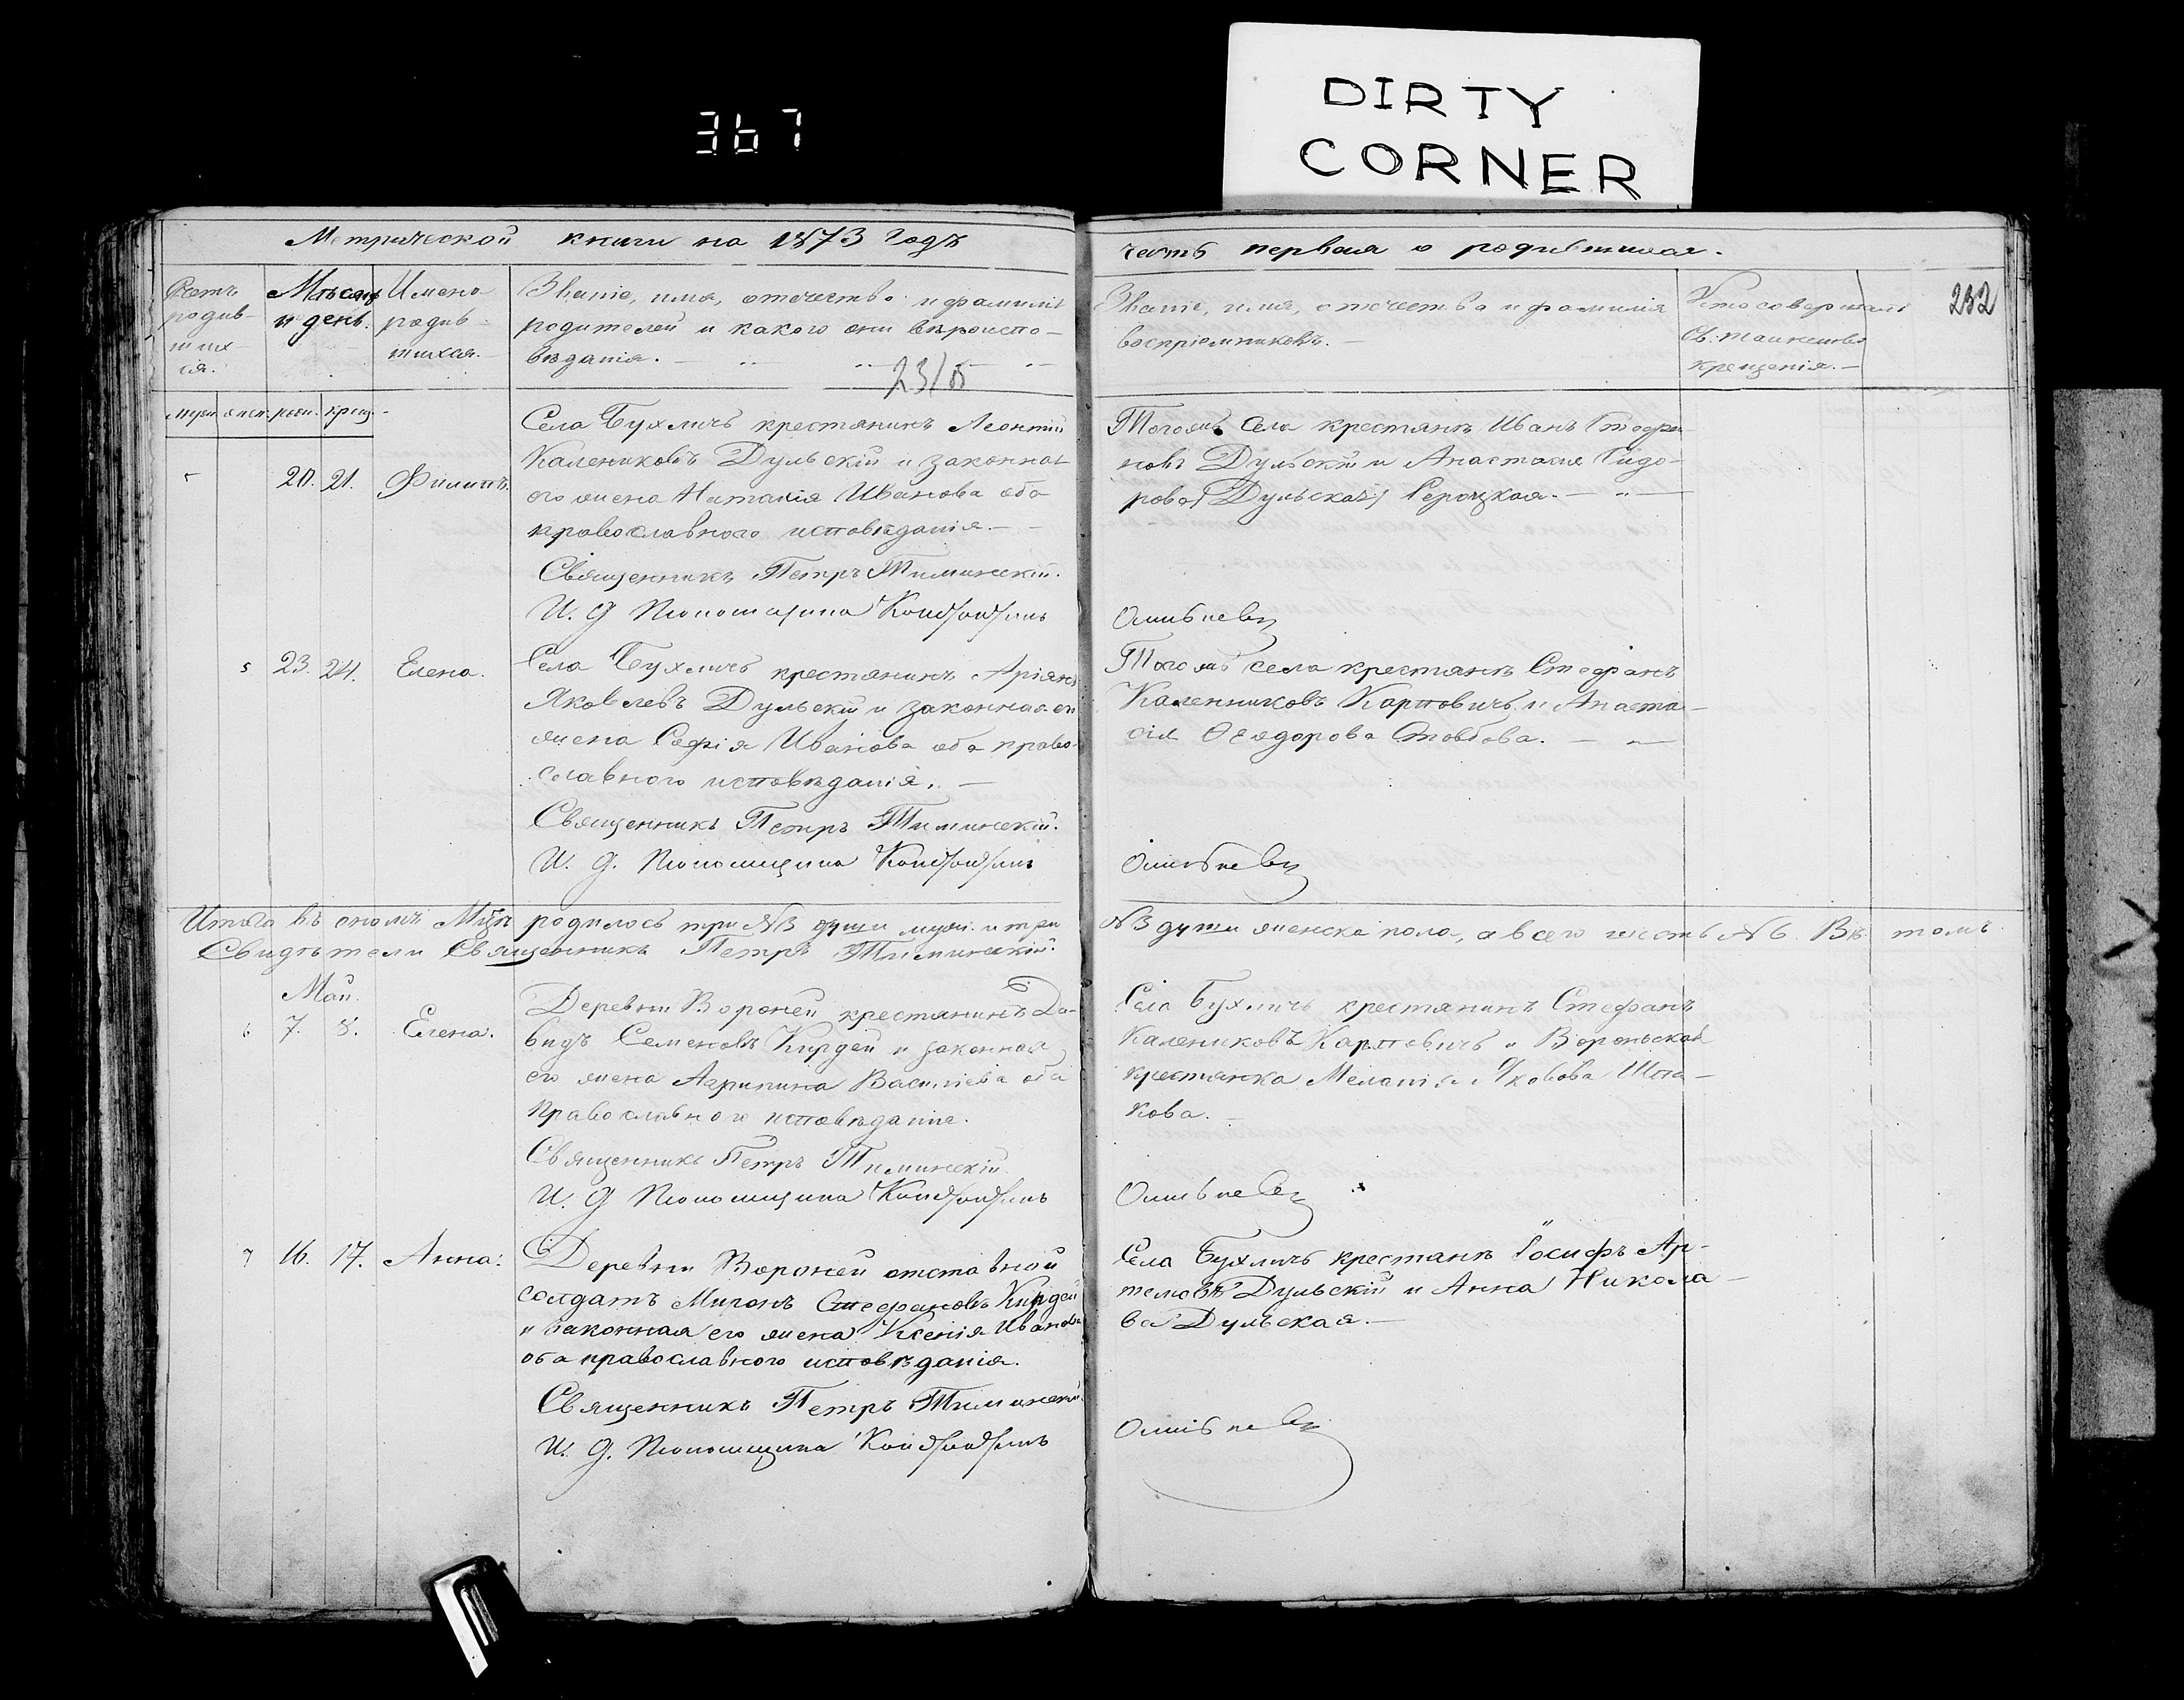 367
DIRTY
CORNER
Метрической книги на 1873 годъ
часть первая о родившихся.
232
Счетъ
родив-
ших-
ся.
Мѣсяцъ
и день.
Имена
родив-
шихся.
Званіе, имя, отечество и фамилія
родителей и какого они вѣроиспо-
вѣданія.
Званіе, имя, отечество и фамилія
воспріемниковъ.
Кто совершалъ
Св. таинство
крещенія.
муж. женск. родн. крещ.
20. 21. Филиппъ.
Села Бухличь крестянинъ Леонтій
Калениковъ Дульскій и законная
его жена Наталія Иванова оба
православного исповѣданія.
Священникъ Петръ Тиминскій.
И. д Пономарина
Тогожъ Села крестянъ Иванъ Стефа-
новъ Дульскій и Анастасія Сидо-
рова (Дульская)
5 23. 24. Елена.
Села Бухличь крестянинъ Аріянъ
Яковлевъ Дульскій и законная его
жена Софія Иванова оба право-
славного исповѣданія.
Священникъ Петръ Тиминскій.
И. д. Пономарина
Тогожъ села крестянъ Стефанъ
Каленниковъ Карповичъ и Анаста-
сія Ѳеодорова Стовбова.
Итого въ ономъ Мцѣ родилось три №3 души муж. и три
№3 души женска пола, а всего шесть №6. Въ томъ
Свидѣтели Священникъ Петръ Тиминскій.
Май.
6 7. 8. Елена.
Деревни Вороней крестянинъ Да-
видъ Семеновъ Кирдей и законная
его жена Агрипина Василіева оба
Православного исповѣданія.
Священникъ Петръ Тиминскій
И. д Пономарина
Села Бухличь крестянинъ Стефанъ
Калениковъ Карповичъ и Вороньская
крестянка Меланія Яковова Шпа-
кова.
7 16. 17. Анна.
Деревни Вороней отставной
солдатъ Миронъ Стефановъ Кирдей
и законная его жена Ксенія Иванова
оба православного исповѣданія.
Священникъ Петръ Тиминскій.
И. д. Пономарина
Села Бухличь крестянъ Іосифъ Ар-
темовъ Дульскій и Анна Никола-
ва Дульская.